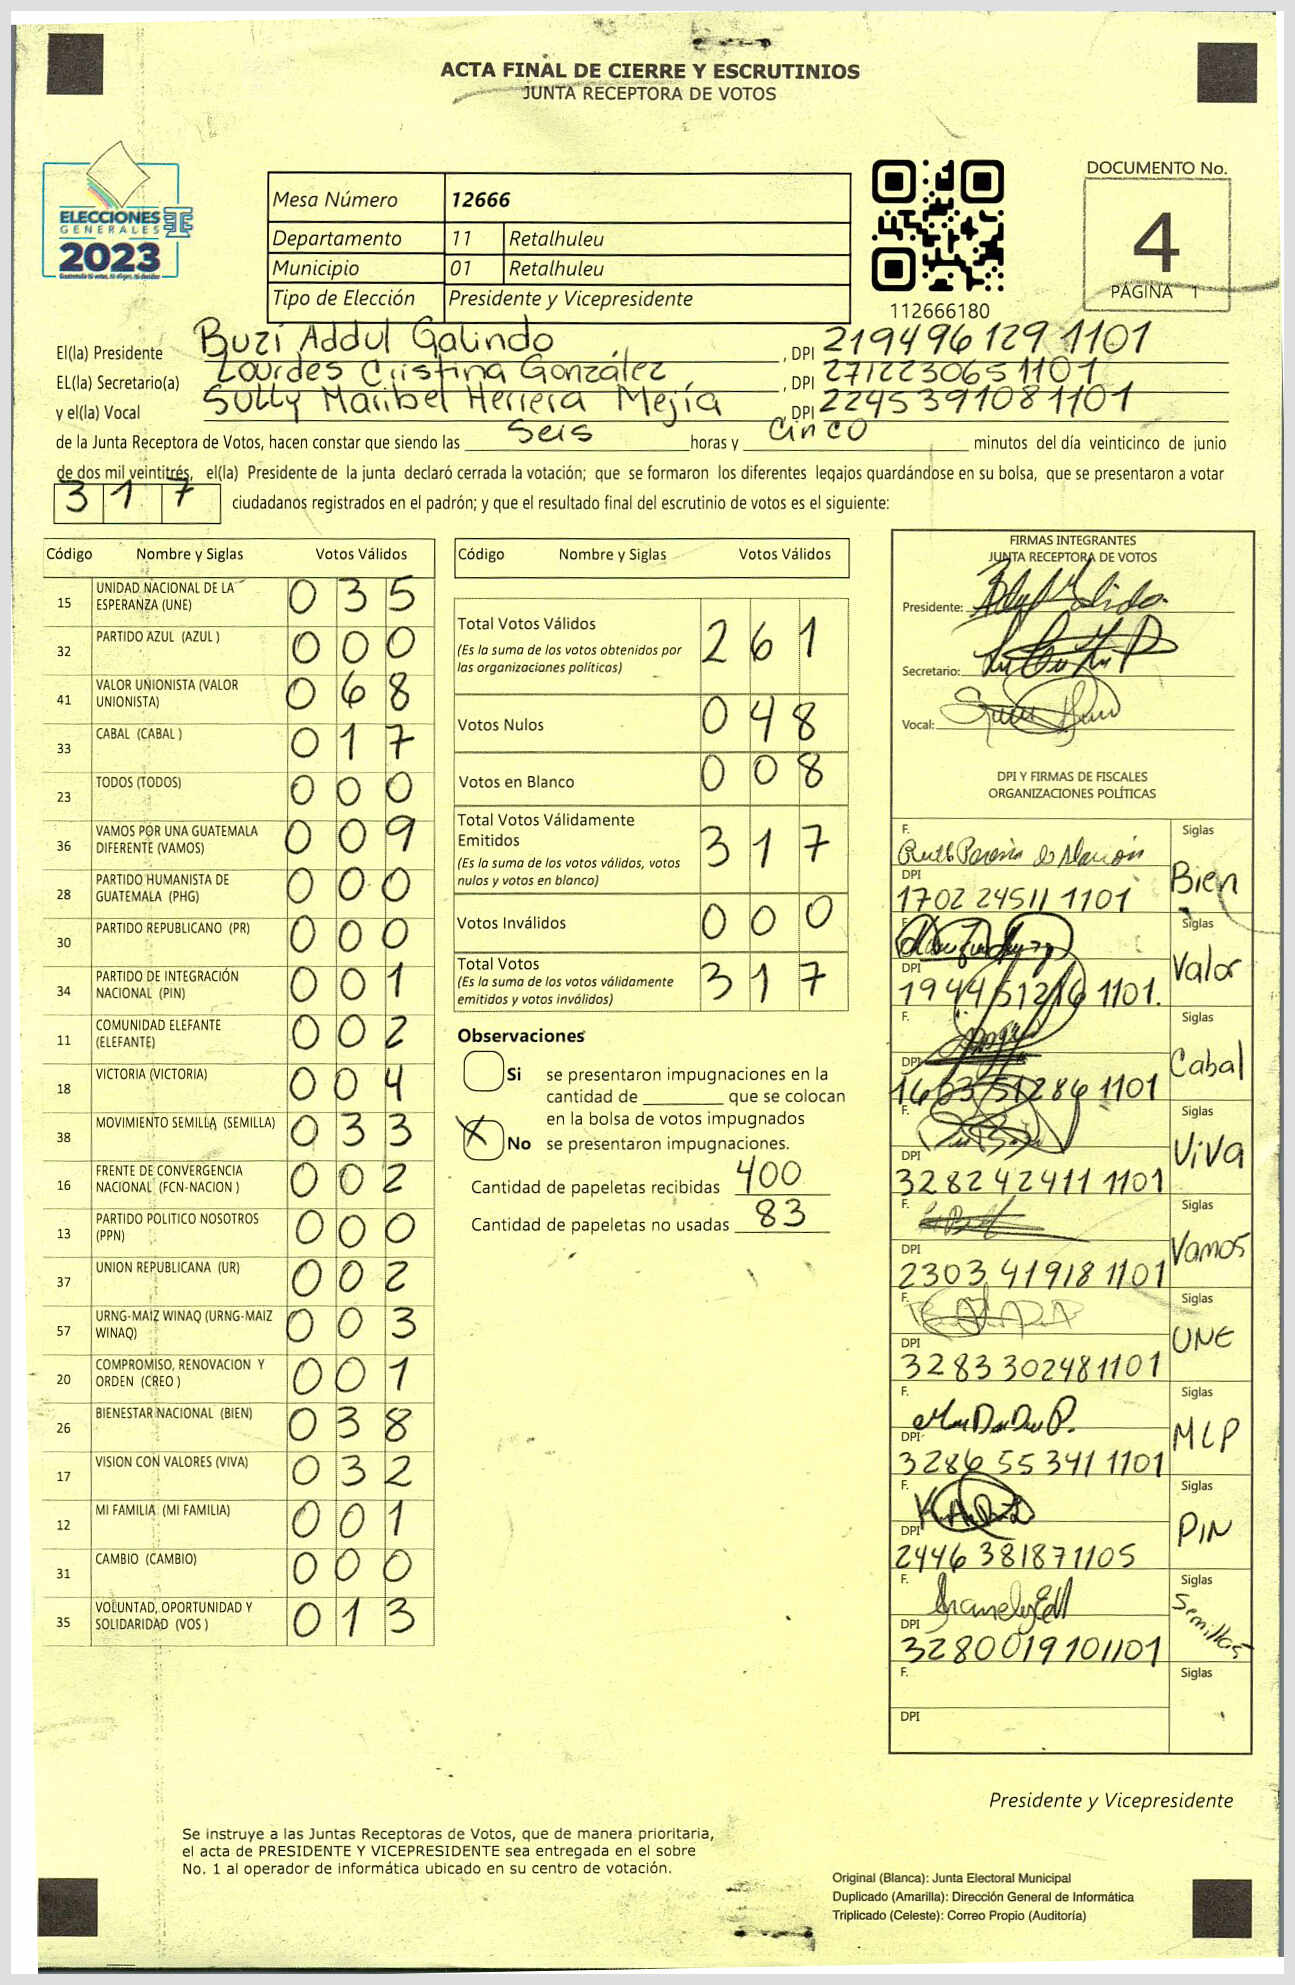 ACTA FINAL DE CIERRE Y ESCRUTINIOS
JUNTA RECEPTORA DE VOTOS
ELECCIONES
GENERALES
2023
Mesa Número 12666
Departamento 11 Retalhuleu
Municipio 01 Retalhuleu
Tipo de Elección Presidente y Vicepresidente
112666180
DOCUMENTO No.
4
PÁGINA 1
El(la) Presidente Buzi Addul Galindo , DPI 2194961291101
EL(la) Secretario(a) Lourdes Cristina González , DPI 2712230651101
y el(la) Vocal Sully Maribel Herrera Mejía , DPI 2245391081101
de la Junta Receptora de Votos, hacen constar que siendo las Seis horas y Cinco minutos del día veinticinco de junio
de dos mil veintitrés, el(la) Presidente de la junta declaró cerrada la votación; que se formaron los diferentes legajos guardándose en su bolsa, que se presentaron a votar
317 ciudadanos registrados en el padrón; y que el resultado final del escrutinio de votos es el siguiente:
Código Nombre y Siglas Votos Válidos
15 UNIDAD NACIONAL DE LA ESPERANZA (UNE) 035
32 PARTIDO AZUL (AZUL ) 000
41 VALOR UNIONISTA (VALOR UNIONISTA) 068
33 CABAL (CABAL ) 017
23 TODOS (TODOS) 000
36 VAMOS POR UNA GUATEMALA DIFERENTE (VAMOS) 009
28 PARTIDO HUMANISTA DE GUATEMALA (PHG) 000
30 PARTIDO REPUBLICANO (PR) 000
34 PARTIDO DE INTEGRACIÓN NACIONAL (PIN) 001
11 COMUNIDAD ELEFANTE (ELEFANTE) 002
18 VICTORIA (VICTORIA) 004
38 MOVIMIENTO SEMILLA (SEMILLA) 033
16 FRENTE DE CONVERGENCIA NACIONAL (FCN-NACION ) 002
13 PARTIDO POLITICO NOSOTROS (PPN) 000
37 UNION REPUBLICANA (UR) 002
57 URNG-MAIZ WINAQ (URNG-MAIZ WINAQ) 003
20 COMPROMISO, RENOVACION Y ORDEN (CREO ) 001
26 BIENESTAR NACIONAL (BIEN) 038
17 VISION CON VALORES (VIVA) 032
12 MI FAMILIA (MI FAMILIA) 001
31 CAMBIO (CAMBIO) 000
35 VOLUNTAD, OPORTUNIDAD Y SOLIDARIDAD (VOS ) 013
Código Nombre y Siglas Votos Válidos
Total Votos Válidos 261
(Es la suma de los votos obtenidos por
las organizaciones políticas)
Votos Nulos 048
Votos en Blanco 008
Total Votos Válidamente
Emitidos 317
(Es la suma de los votos válidos, votos
nulos y votos en blanco)
Votos Inválidos 000
Total Votos 317
(Es la suma de los votos válidamente
emitidos y votos inválidos)
Observaciones
Si se presentaron impugnaciones en la
cantidad de ________ que se colocan
en la bolsa de votos impugnados
X No se presentaron impugnaciones.
Cantidad de papeletas recibidas 400
Cantidad de papeletas no usadas 83
FIRMAS INTEGRANTES
JUNTA RECEPTORA DE VOTOS
Presidente:
Secretario:
Vocal:
DPI Y FIRMAS DE FISCALES
ORGANIZACIONES POLÍTICAS
F. Siglas
DPI 1702 24511 1101 Bien
F. Siglas
DPI Valor
F. Siglas
DPI Cabal
F. Siglas
DPI 3282 42411 1101 ViVa
F. Siglas
DPI 2303 41918 1101 Vamos
F. Siglas
DPI 3283 30248 1101 UNE
F. Siglas
DPI 3286 55341 1101 MLP
F. Siglas
DPI 2446 38187 1105 PIN
F. Siglas
DPI 3280019101101 Semillas
F. Siglas
DPI
Presidente y Vicepresidente
Se instruye a las Juntas Receptoras de Votos, que de manera prioritaria,
el acta de PRESIDENTE Y VICEPRESIDENTE sea entregada en el sobre
No. 1 al operador de informática ubicado en su centro de votación.
Original (Blanca): Junta Electoral Municipal
Duplicado (Amarilla): Dirección General de Informática
Triplicado (Celeste): Correo Propio (Auditoría)